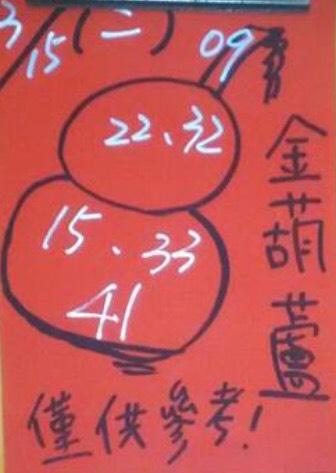 3/15(二)
09
22、32
15、33
41
金葫蘆
僅供參考!